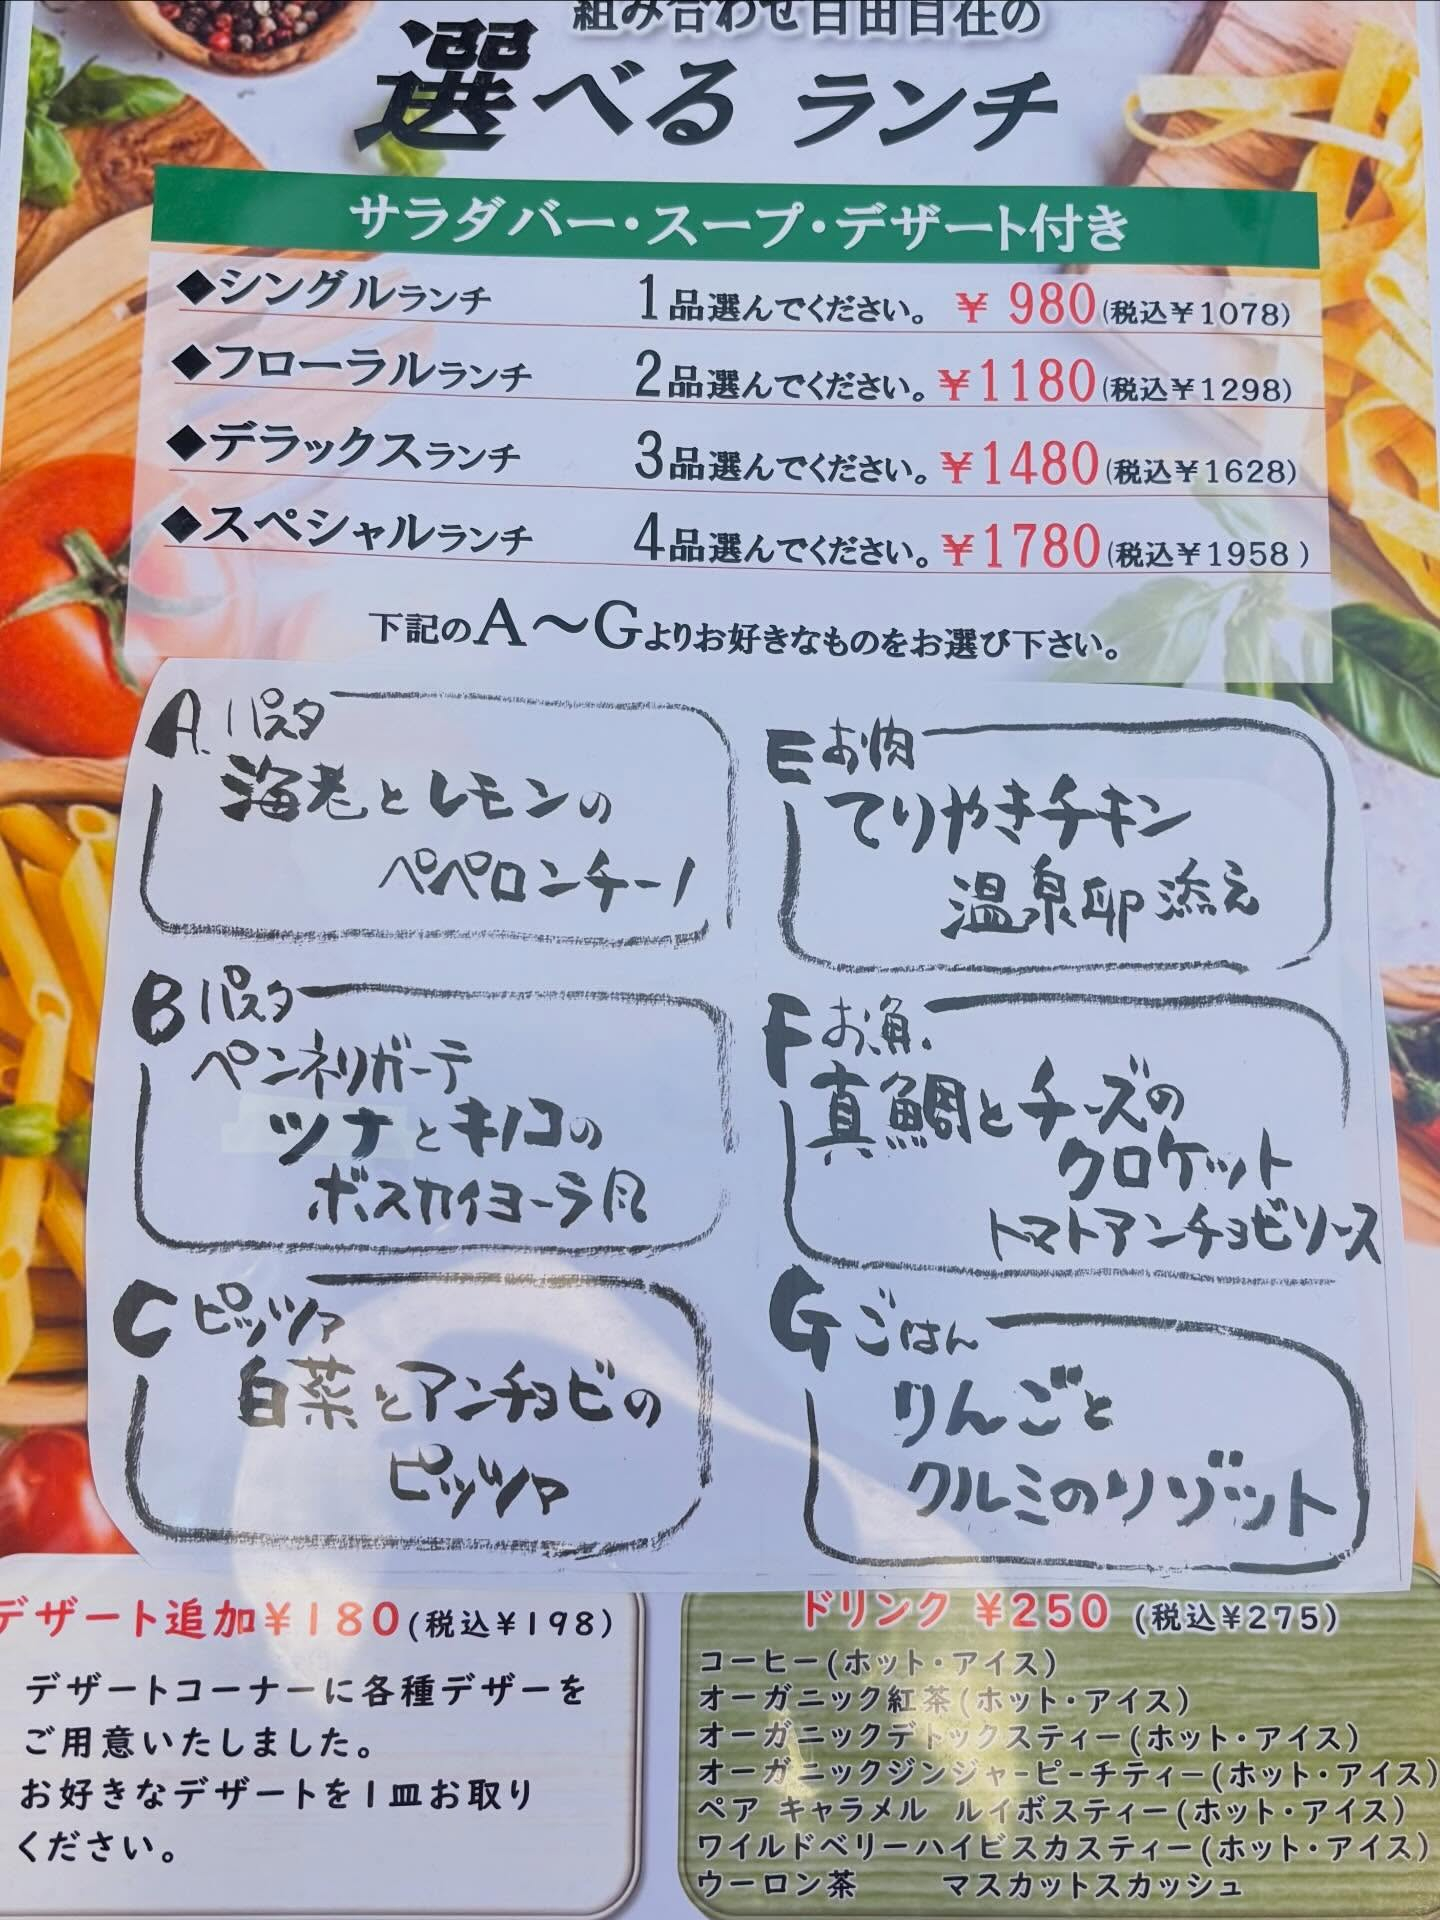 組み合わせ自由自在の
選べる ランチ
サラダバー・スープ・デザート付き
◆シングルランチ 1品選んでください。 ¥ 980(税込¥1078)
◆フローラルランチ 2品選んでください。¥1180(税込¥1298)
◆デラックスランチ 3品選んでください。¥1480(税込¥1628)
◆スペシャルランチ 4品選んでください。¥1780(税込¥1958 )
下記のA〜Gよりお好きなものをお選び下さい。
A. パスタ
海老とレモンの
ペペロンチーノ
B パスタ
ペンネリガーテ
ツナとキノコの
ボスカイヨーラ風
C ピッツァ
白菜とアンチョビの
ピッツァ
E お肉
てりやきチキン
温泉卵添え
F お魚
真鯛とチーズの
クロケット
トマトアンチョビソース
G ごはん
りんごと
クルミのリゾット
デザート追加¥180(税込¥198)
デザートコーナーに各種デザーを
ご用意いたしました。
お好きなデザートを1皿お取り
ください。
ドリンク ¥250 (税込¥275)
コーヒー(ホット・アイス)
オーガニック紅茶(ホット・アイス)
オーガニックデトックスティー(ホット・アイス)
オーガニックジンジャーピーチティー(ホット・アイス)
ペア キャラメル ルイボスティー(ホット・アイス)
ワイルドベリーハイビスカスティー(ホット・アイス)
ウーロン茶 マスカットスカッシュ